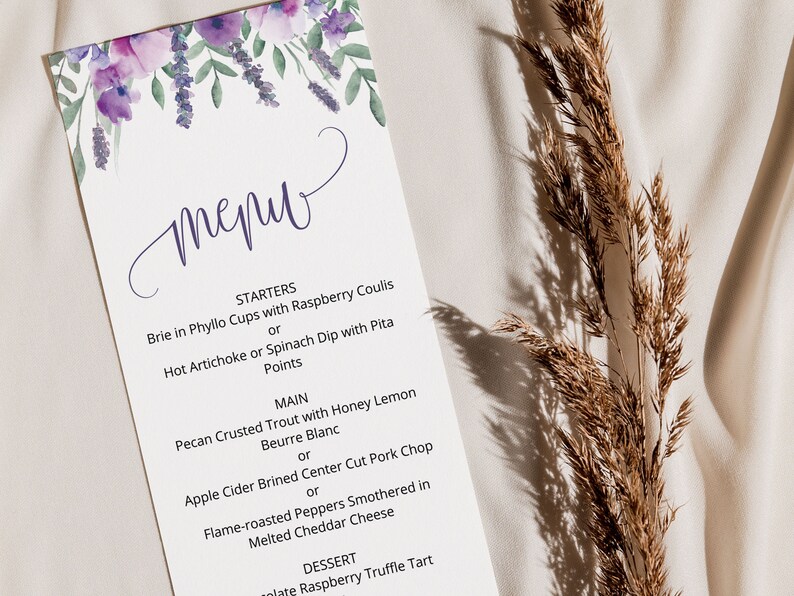 menu
STARTERS
Brie in Phyllo Cups with Raspberry Coulis
or
Hot Artichoke or Spinach Dip with Pita
Points
MAIN
Pecan Crusted Trout with Honey Lemon
Beurre Blanc
or
Apple Cider Brined Center Cut Pork Chop
or
Flame-roasted Peppers Smothered in
Melted Cheddar Cheese
DESSERT
olate Raspberry Truffle Tart